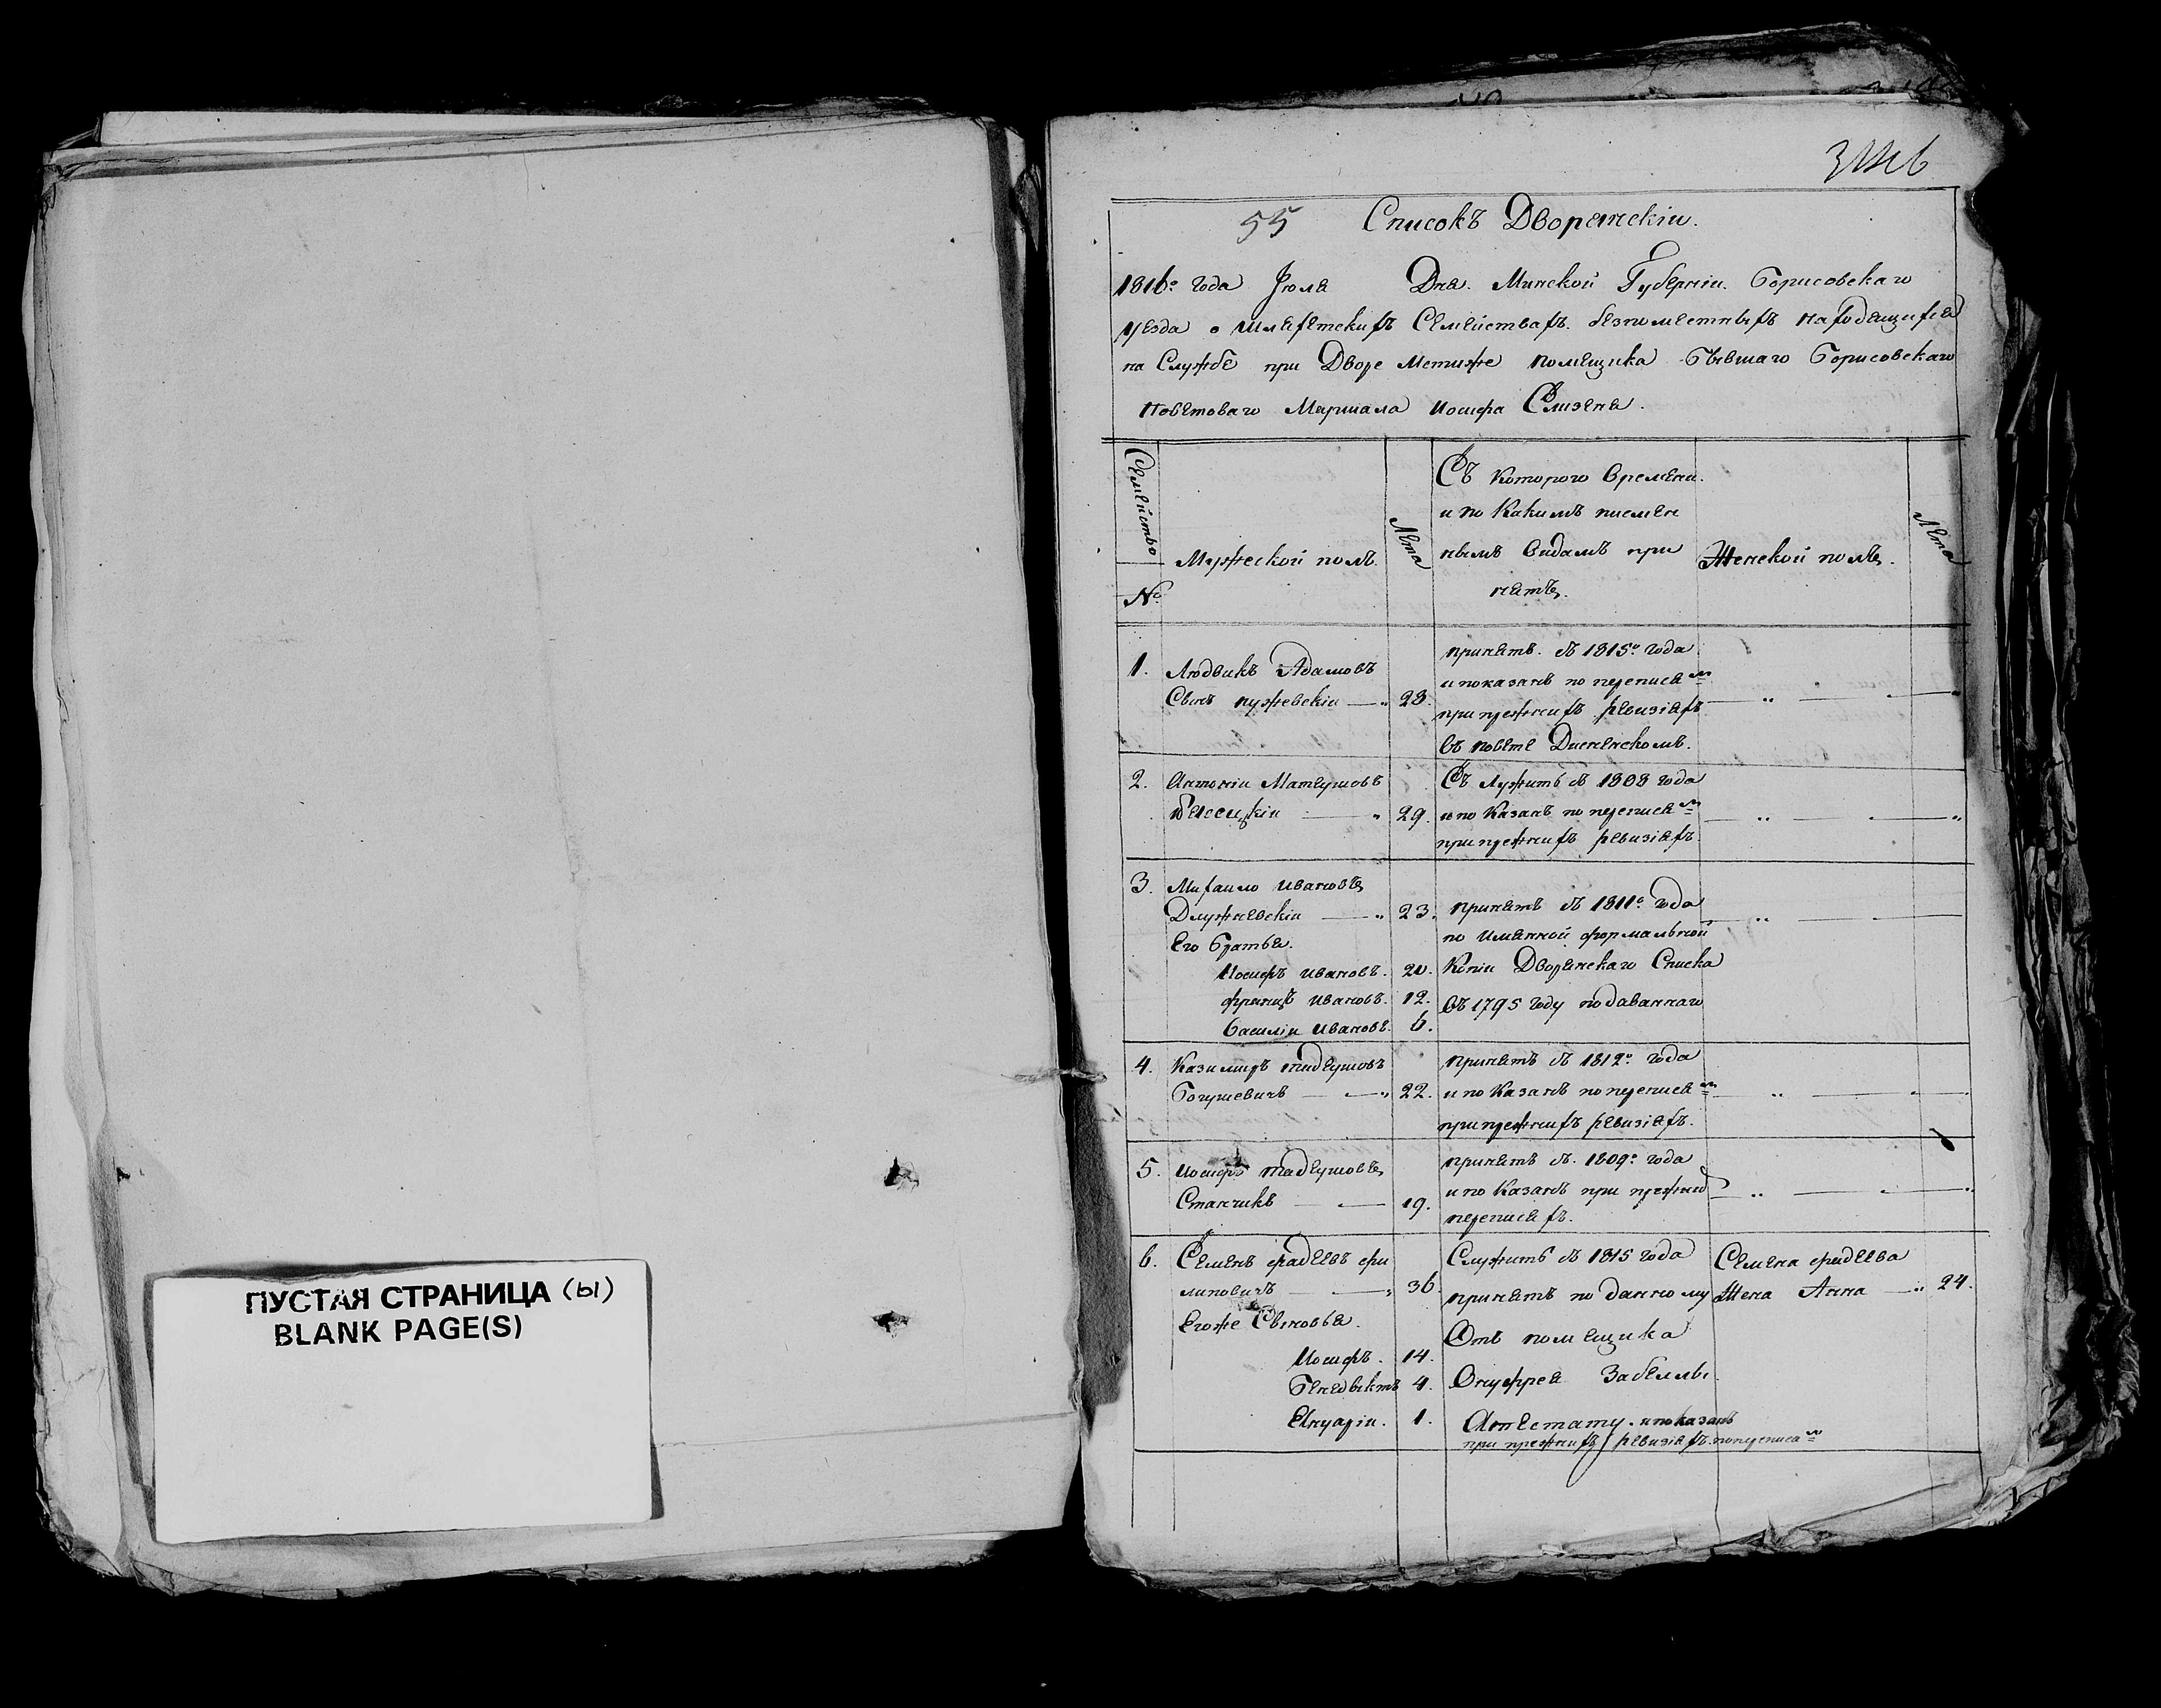 ПУСТАЯ СТРАНИЦА (Ы)
BLANK PAGE(S)
55 Списокъ Дворянскіи.
1816го года Июля Дня. Минской Губерніи. Борисовскаго
уезда о шляхетскихъ Семействахъ. безпоместныхъ находящихся
на Службе при Дворе Метиже помещика бывшаго Борисовскаго
поветоваго Маршала иосифа Слизеня.
Семейство
№
Мужеской полъ.
Лета
Съ которого времени.
и по какимъ писмен
нымъ видамъ при
нятъ.
Женской полъ.
Лета
1. Людвикъ Адамовъ
Сынъ пужевскіи 23.
принятъ. съ 1815го года
и показанъ по переписям
при прежнихъ ревизіяхъ
въ повете Дисненскомъ.
2. Антоніи Матеушовъ
29.
Съ лужитъ съ 1808 года
и по казанъ по переписям
при прежнихъ ревизіяхъ.
3. Михаило ивановъ
Длужневскіи 23.
Его братья.
Иосифъ ивановъ. 20.
францъ ивановъ. 12.
василіи ивановъ. 6.
принятъ съ 1811го года
по имянной формальной
копіи Дворянскаго Списка
въ 1795 году подаваннаго
4. Казимиръ тадеушовъ
Богушевичъ 22.
принятъ съ 1812го года
и по казанъ по переписям
при прежнихъ ревизіяхъ.
5. иосифъ тадеушовъ
Станчикъ 19.
принятъ съ. 1809го года
и по казанъ при прежних
переписяхъ.
6. Семенъ фадеевъ фи
липовичъ 36
Егоже Сыновья.
Иосифъ. 14.
Бенедыктъ 4.
Януаріи. 1.
Служитъ съ 1815 года
принятъ по данному
Отъ помещика
Онуфрея Забеллы.
Атестату. и показанъ
при прежнихъ ревизіяхъ. по переписям
Семена фадеева
Жена Анна 24.